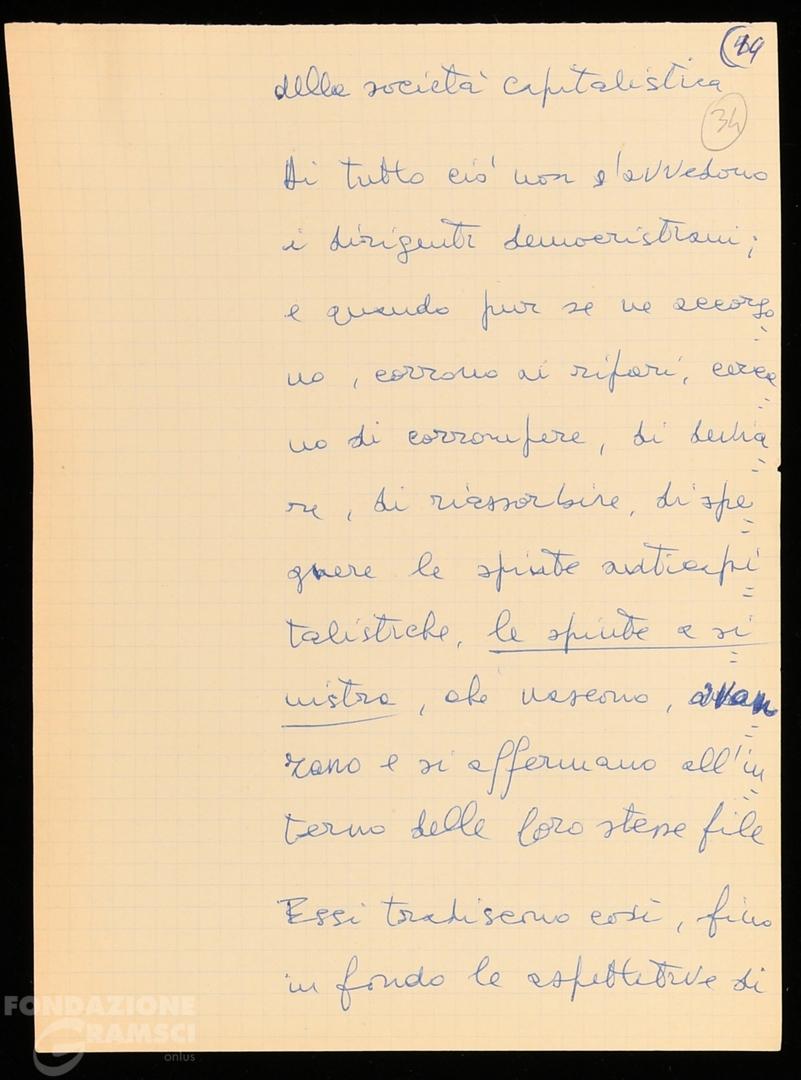 49
della società capitalistica
34
Di tutto ciò non s'avvedono
i dirigenti democristiani;
e quando pur se ne accorgo
no, corrono ai ripari, cerca
no di corrompere, di devia
re, di riassorbire, di spe
gnere le spinte anticapi
talistiche, le spinte a si
nistra, che nascono, avan
zano e si affermano all'in
terno delle loro stesse file
Essi tradiscono così, fino
in fondo le aspettative di
FONDAZIONE
GRAMSCI
onlus